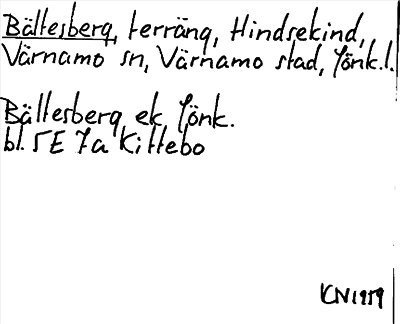 Bältesberg, terräng, Hindsekind,
Värnamo sn, Värnamo stad, Jönk.l.
Bältesberg ek. Jönk.
bl. 5E 7a Kittebo
KN1959